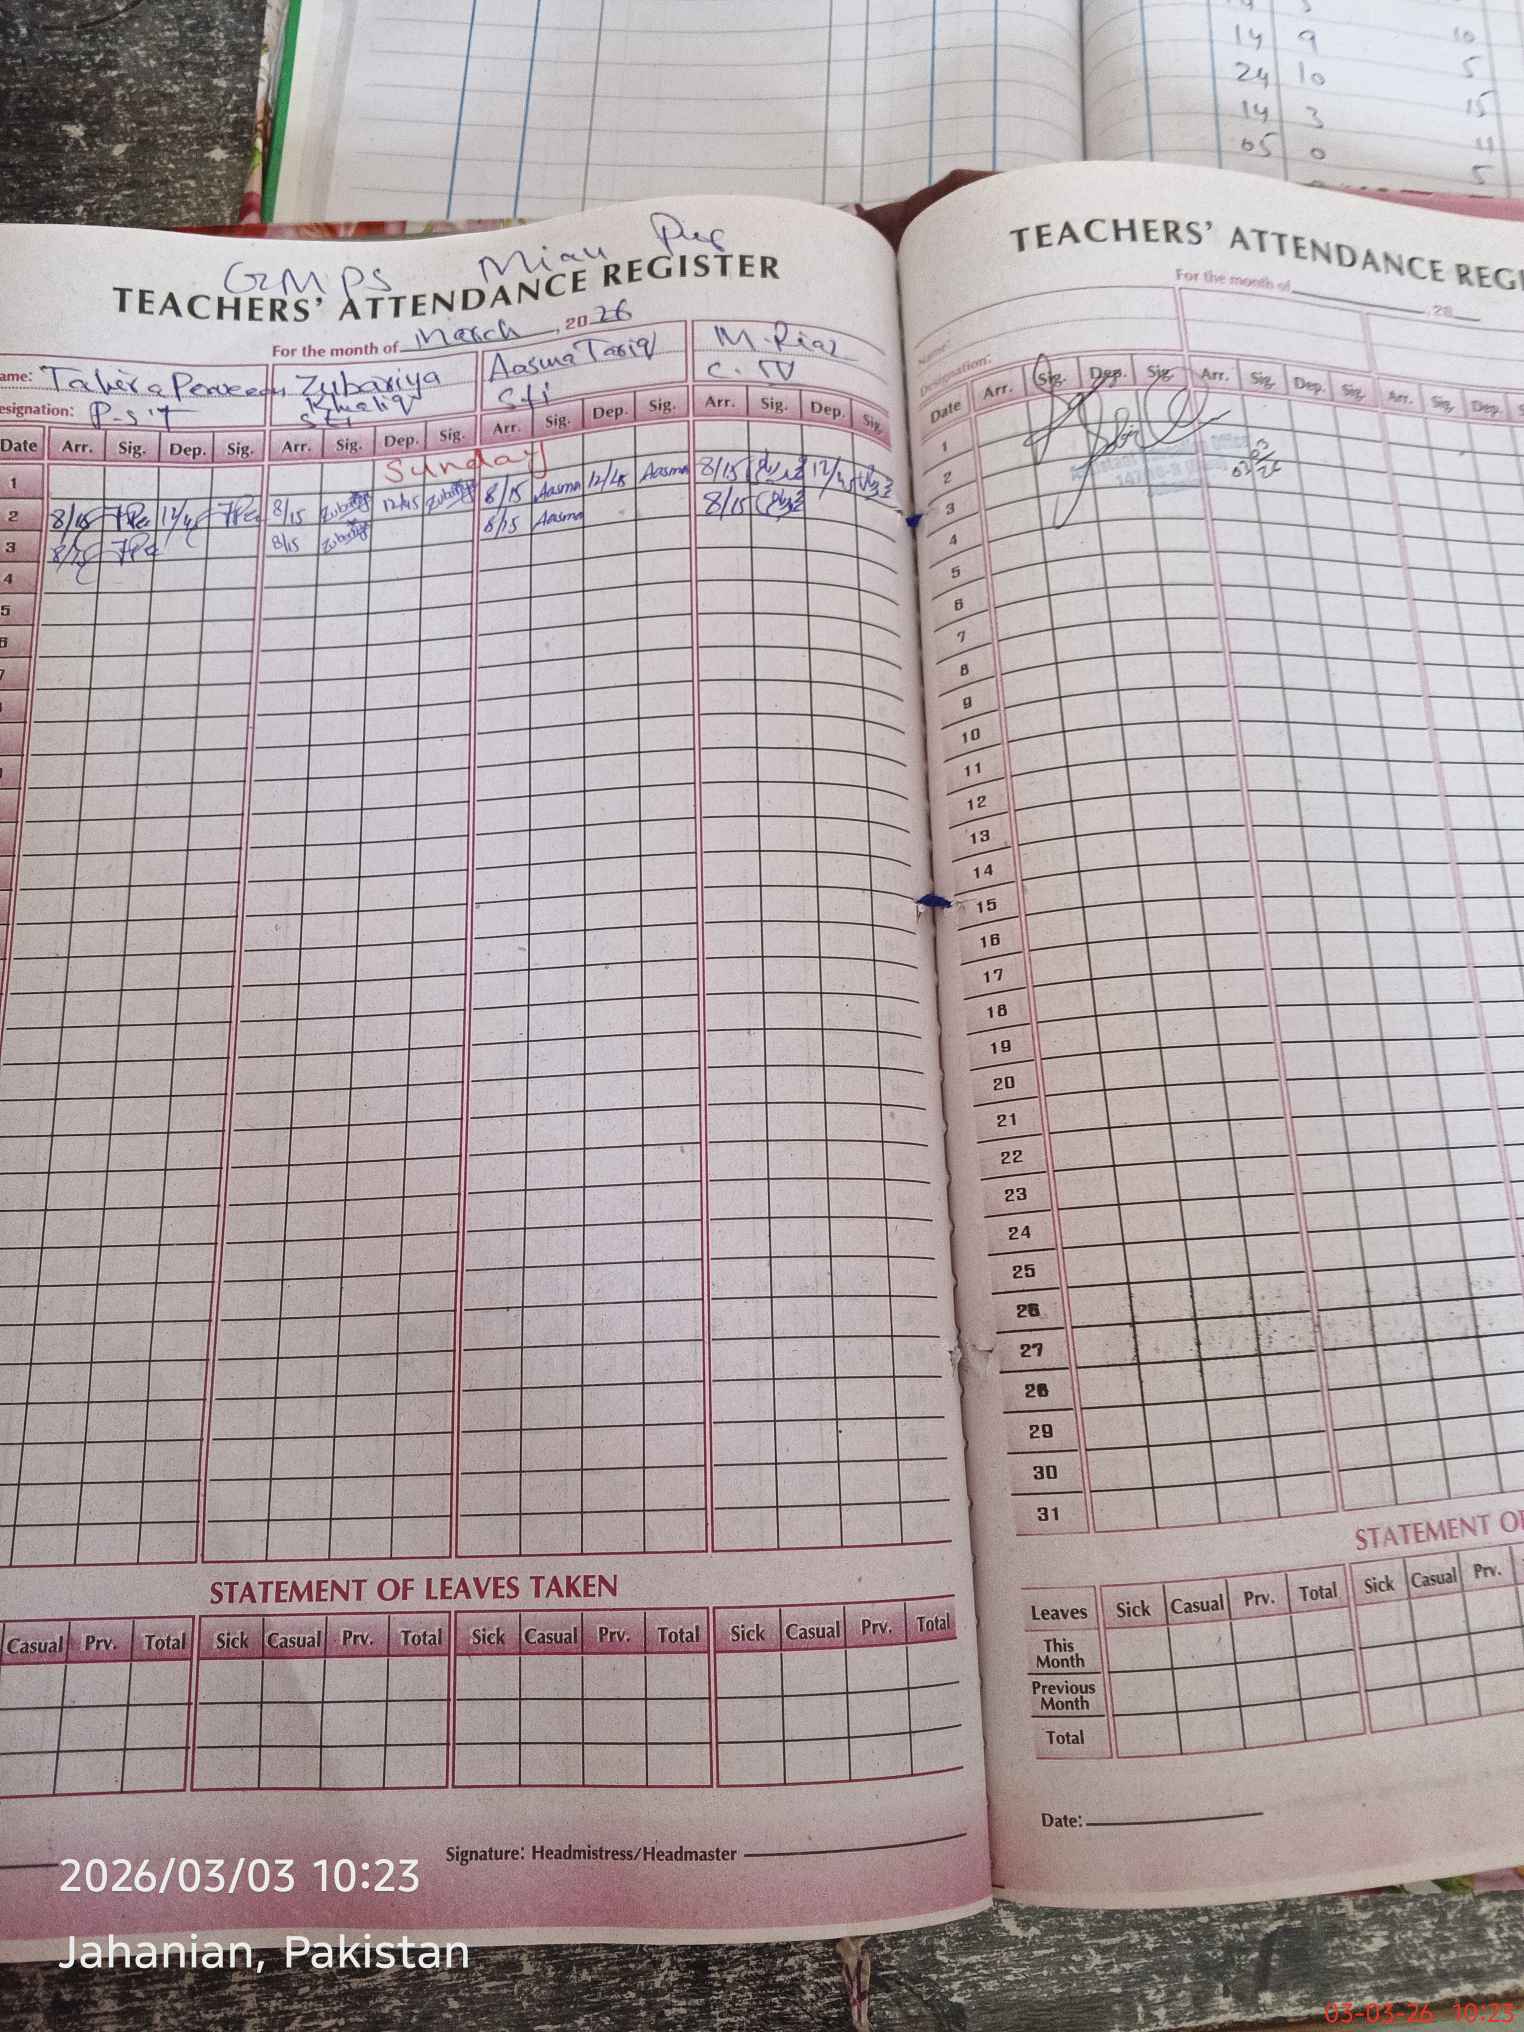 14 9 10
24 10 5
14 3 15
05 0 11
5
GMPS Mian Pur
TEACHERS' ATTENDANCE REGISTER
For the month of March, 2026
Name: Tahira Perveen Zubariya Khaliq Aasma Tariq M. Riaz
Designation: P-S-T STI STI C. IV
Date Arr. Sig. Dep. Sig. Arr. Sig. Dep. Sig. Arr. Sig. Dep. Sig. Arr. Sig. Dep. Sig.
1 Sunday
2 8/15 TPe 12/45 TPe 8/15 Zubariya 12/45 Zubariya 8/15 Aasma 12/45 Aasma 8/15 12/45
3 8/15 TPe 8/15 Zubariya 8/15 Aasma 8/15
4
5
6
7
STATEMENT OF LEAVES TAKEN
Casual Prv. Total Sick Casual Prv. Total Sick Casual Prv. Total Sick Casual Prv. Total
Signature: Headmistress/Headmaster
TEACHERS' ATTENDANCE REGI
For the month of , 20
Name:
Designation:
Date Arr. Sig. Dep. Sig. Arr. Sig. Dep. Sig. Arr. Sig. Dep. S
1
2
3
4
5
6
7
8
9
10
11
12
13
14
15
16
17
18
19
20
21
22
23
24
25
26
27
28
29
30
31
STATEMENT OF
Leaves Sick Casual Prv. Total Sick Casual Prv.
This Month
Previous Month
Total
Date:
2026/03/03 10:23
Jahanian, Pakistan
03-03-26 10:23